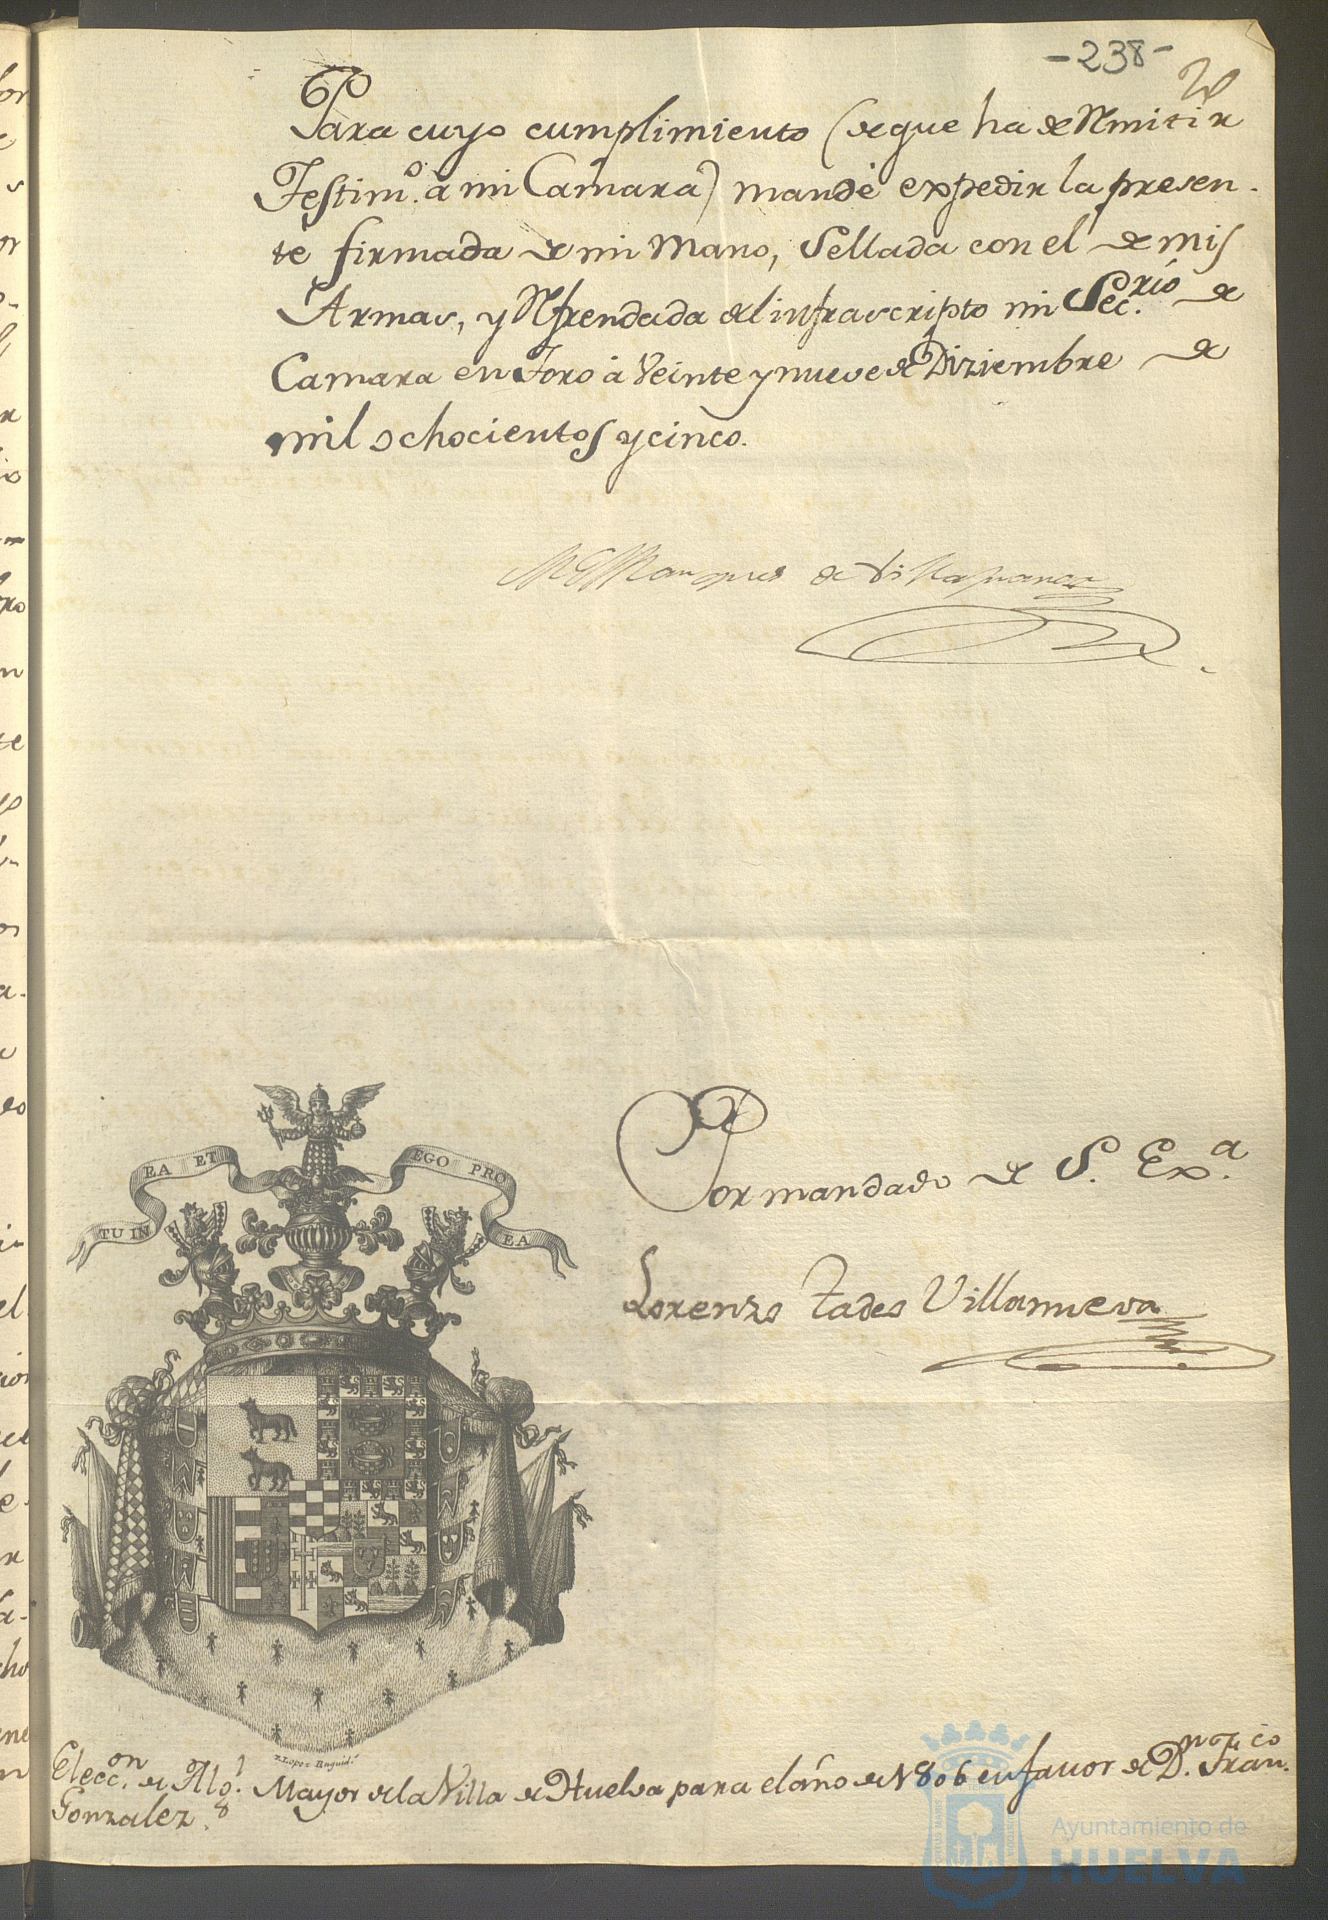 -238-
Para cuyo cumplimiento (de que ha de Remitir
Testim.o à mi Camara) mandè expedir la presen-
te firmada de mi Mano, Sellada con el de mis
Armas, y Refrendada del infrascripto mi Sec.rio de
Camara en Toro à Veinte y nueve de Diziembre de
mil ochocientos y cinco.
El Marques de Villafranca
TU IN EA ET EGO PRO EA
Por mandado de S. Ex.a
Lorenzo Tadeo Villanueva
Elecc.on de Alg.l Mayor de la Villa de Huelva para el año de 1806 en favor de D.n Fran.co
Gonzalez.
Ayuntamiento de
HUELVA